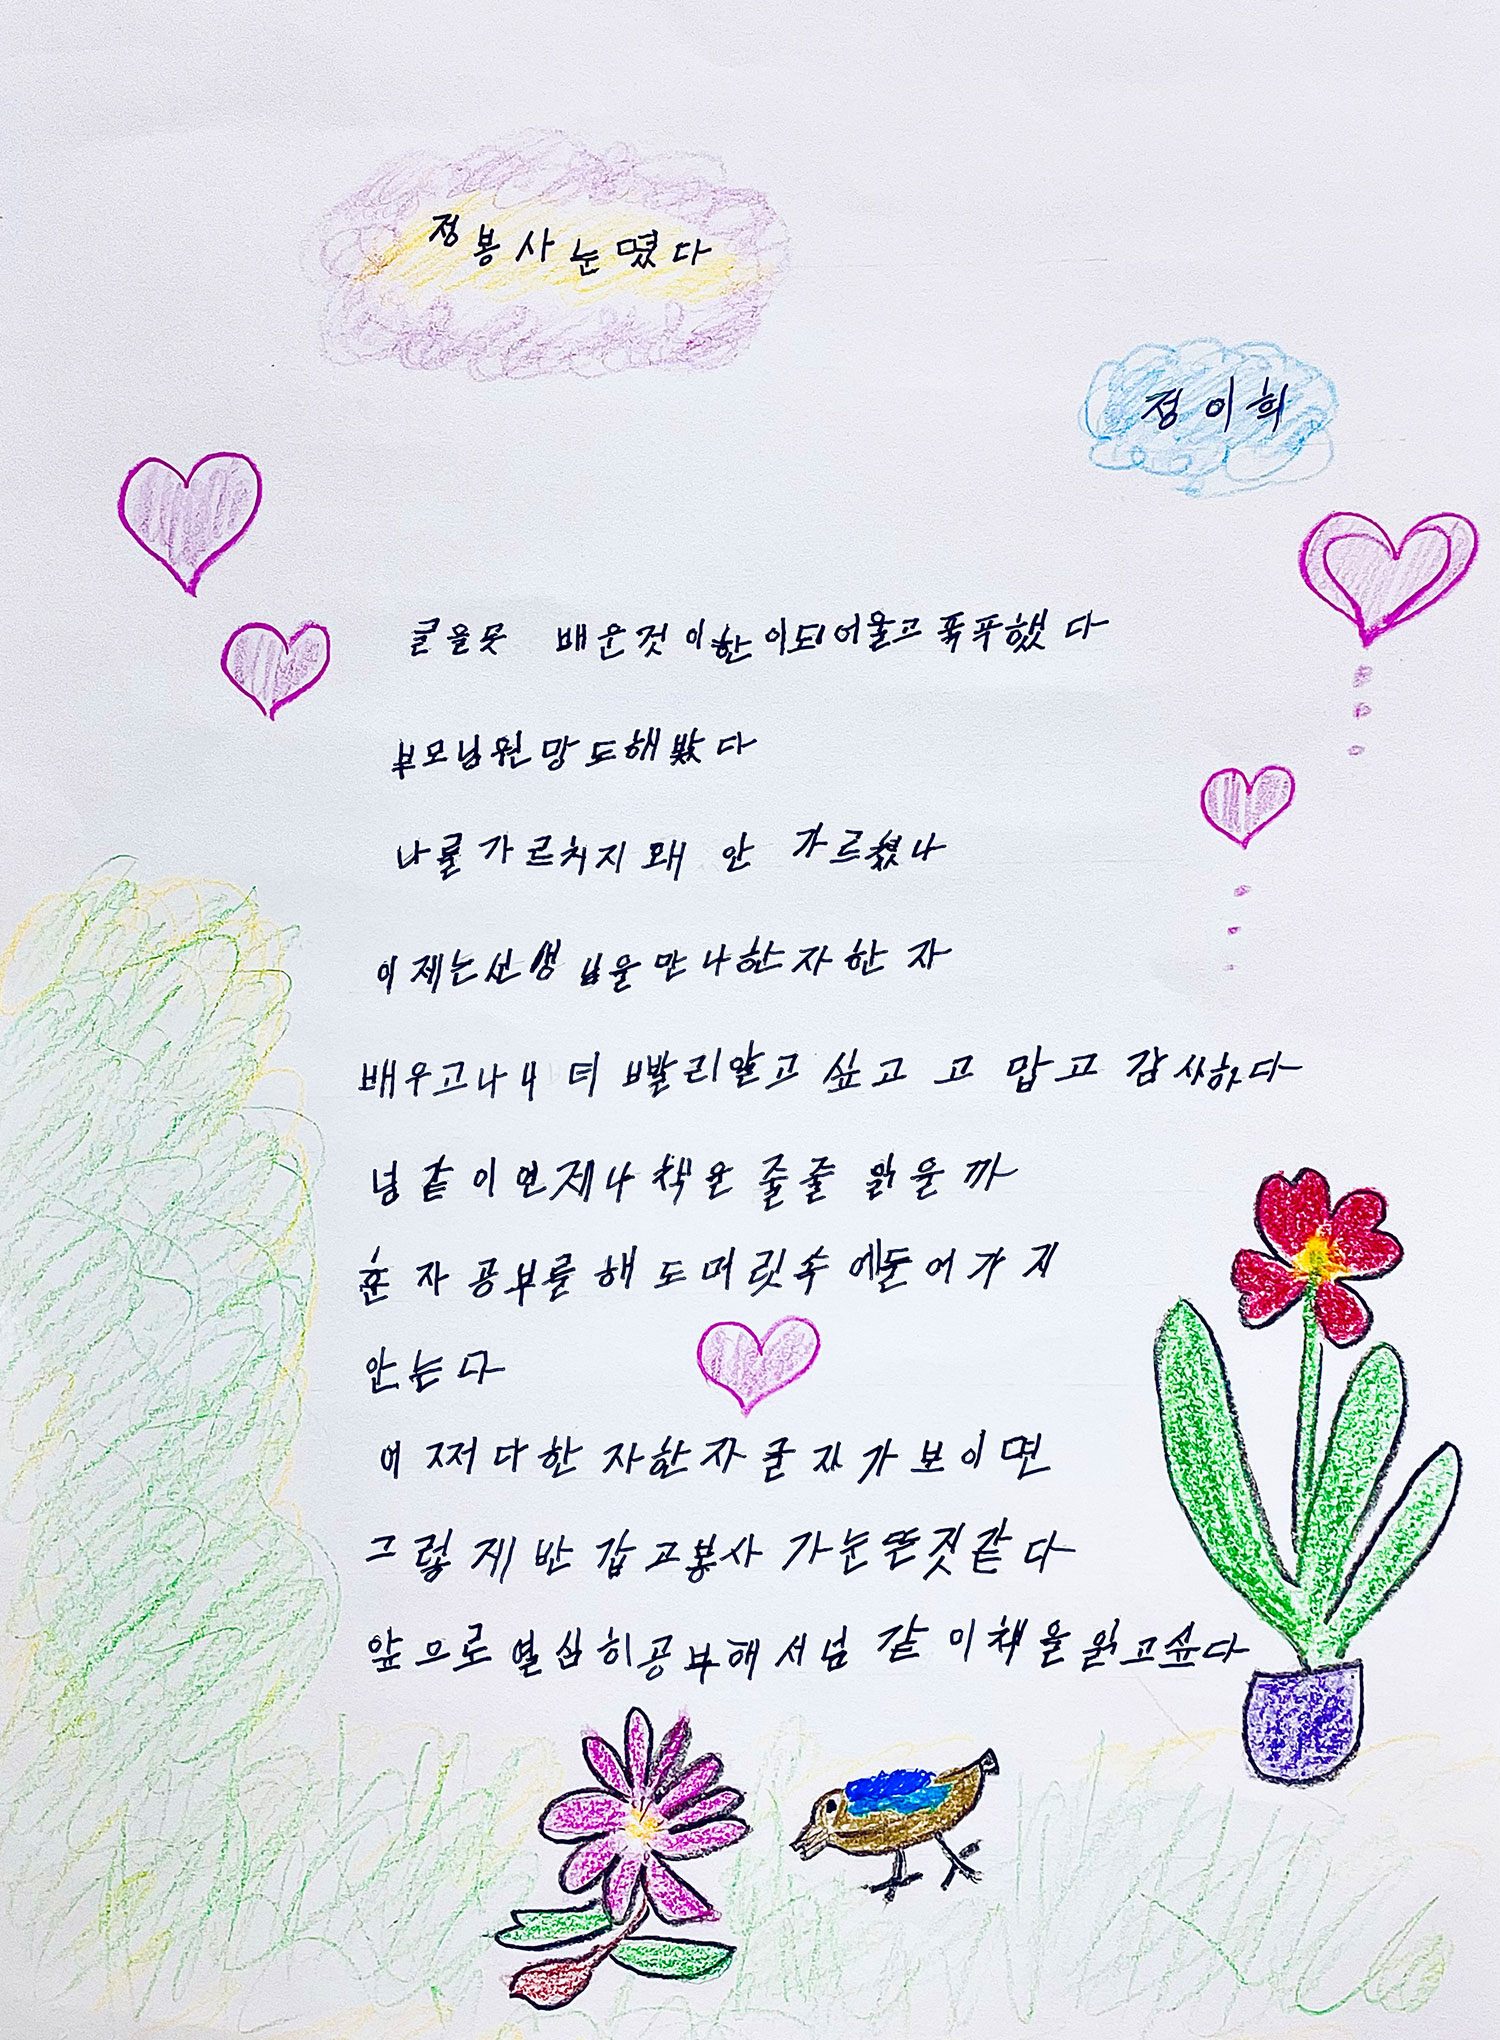 정봉사눈몄다
정이희
글을못 배운것이한이되어울고폭푸했다
부모님원망도해봤다
나를가르치지왜 안 가르쳤나
이제는선생님을만나한자한자
배우고나니 더 빨리알고 싶고 고맙고 감사하다
넘같이언제나 책은 줄줄 읽을까
혼자공부를해도머릿속에들어가지
안는다
어쩌다한자한자글자가보이면
그렇게반갑고봉사가눈뜬것같다
앞으로열심히공부해서넘같이책을읽고싶다